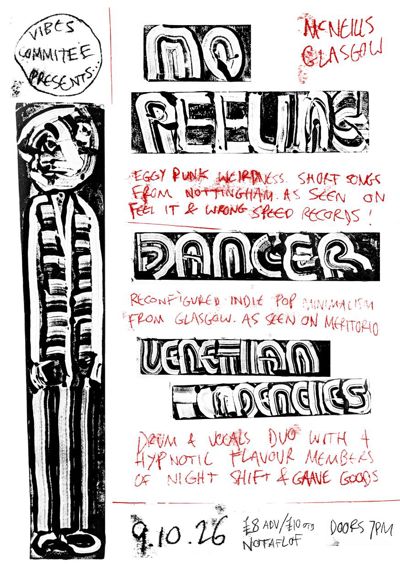 VIBES
COMMITEE
PRESENTS:
MCNEILLS
GLASGOW
MO
FEELING
EGGY PUNK WEIRDNESS. SHORT SONGS
FROM NOTTINGHAM. AS SEEN ON
FEEL IT & WRONG SPEED RECORDS!
DANCER
RECONFIGURED INDIE POP MINIMALISM
FROM GLASGOW. AS SEEN ON MERITORIO
VENETIAN
TENDENCIES
DRUM & VOCALS DUO WITH A
HYPNOTIC FLAVOUR MEMBERS
OF NIGHT SHIFT & GOODS
9.10.26
£8 ADV/£10 OTD
NOTAFLOF
DOORS 7PM